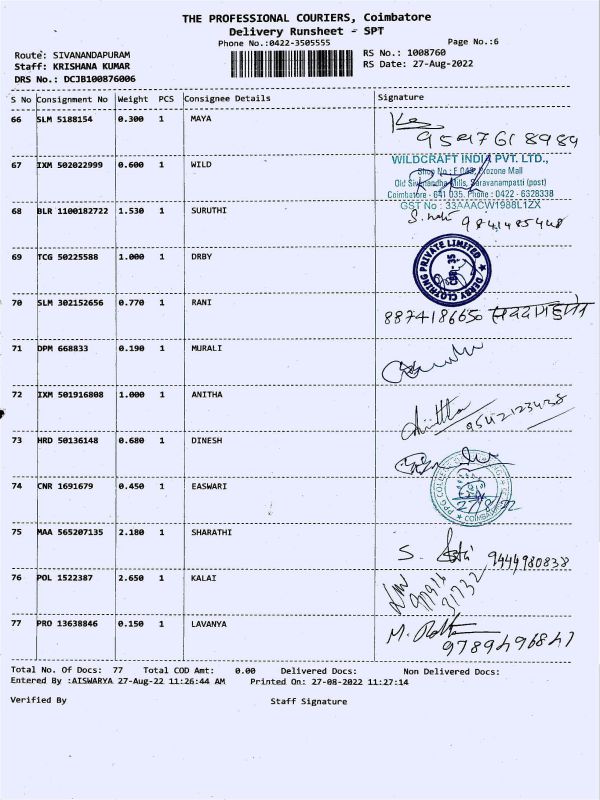 THE PROFESSIONAL COURIERS, Coimbatore
Delivery Runsheet - SPT
Phone No.:0422-3505555 Page No.:6
Route: SIVANANDAPURAM RS No.: 1008760
Staff: KRISHANA KUMAR RS Date: 27-Aug-2022
DRS No.: DCJB100876006
S No Consignment No Weight PCS Consignee Details Signature
66 SLM 5188154 0.300 1 MAYA
9597618989
67 IXM 502022999 0.600 1 WILD
WILDCRAFT INDIA PVT. LTD.,
Shop No : Prozone Mall
Old Sivanandha Mills, Saravanampatti (post)
Coimbatore - 641 035. Phone : 0422 - 6328338
GST No : 33AAACW1988L1ZX
68 BLR 1100182722 1.530 1 SURUTHI
9841485448
69 TCG 50225588 1.000 1 DRBY
DERBY CLOTHING PRIVATE LIMITED
70 SLM 302152656 0.770 1 RANI
8874186650
71 DPM 668833 0.190 1 MURALI
72 IXM 501916808 1.000 1 ANITHA
Anittha 9542123438
73 HRD 50136148 0.680 1 DINESH
74 CNR 1691679 0.450 1 EASWARI
PPG COLLEGE
27/8/22
75 MAA 565207135 2.180 1 SHARATHI
S. 9444980838
76 POL 1522387 2.650 1 KALAI
77 PRO 13638846 0.150 1 LAVANYA
M. 9789496847
Total No. Of Docs: 77 Total COD Amt: 0.00 Delivered Docs: Non Delivered Docs:
Entered By :AISWARYA 27-Aug-22 11:26:44 AM Printed On: 27-08-2022 11:27:14
Verified By Staff Signature